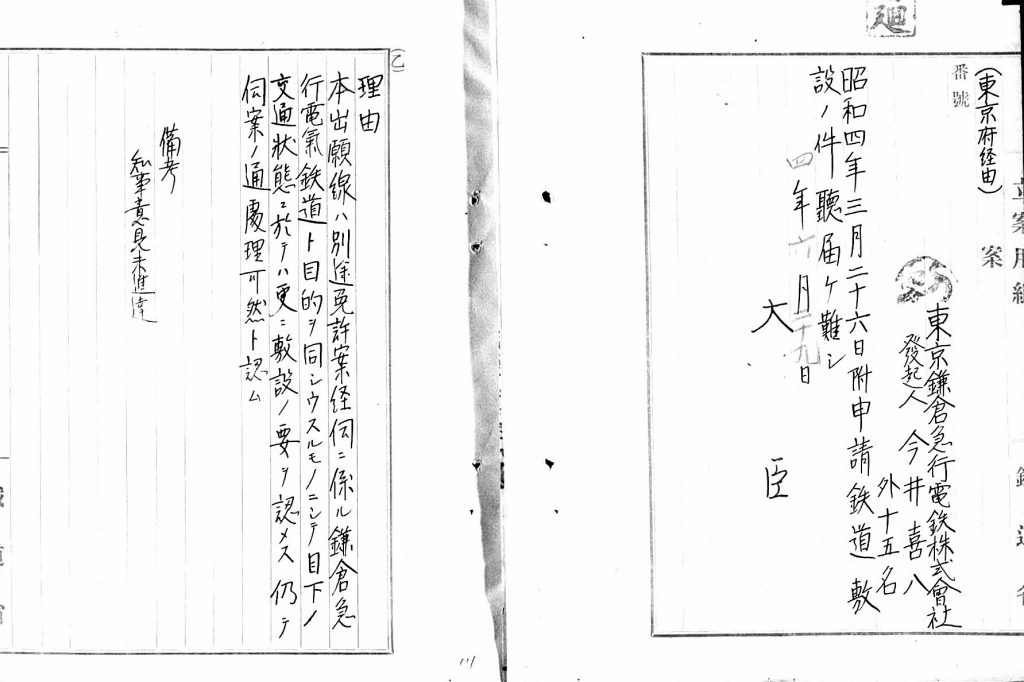 廻
(東京府経由)
番號
案
東京鎌倉急行電鉄株式會社
發起人 今井喜八
外十五名
昭和四年三月二十六日附申請鉄道敷
設ノ件聽届ケ難シ
四年六月二十九日
大臣
(乙)
理由
本出願線ハ別途免許案経伺ニ係ル鎌倉急
行電氣鉄道ト目的ヲ同シウスルモノニシテ目下ノ
交通状態ニ於テハ更ニ敷設ノ要ヲ認メス仍テ
伺案ノ通處理可然ト認ム
備考
知事意見未進達